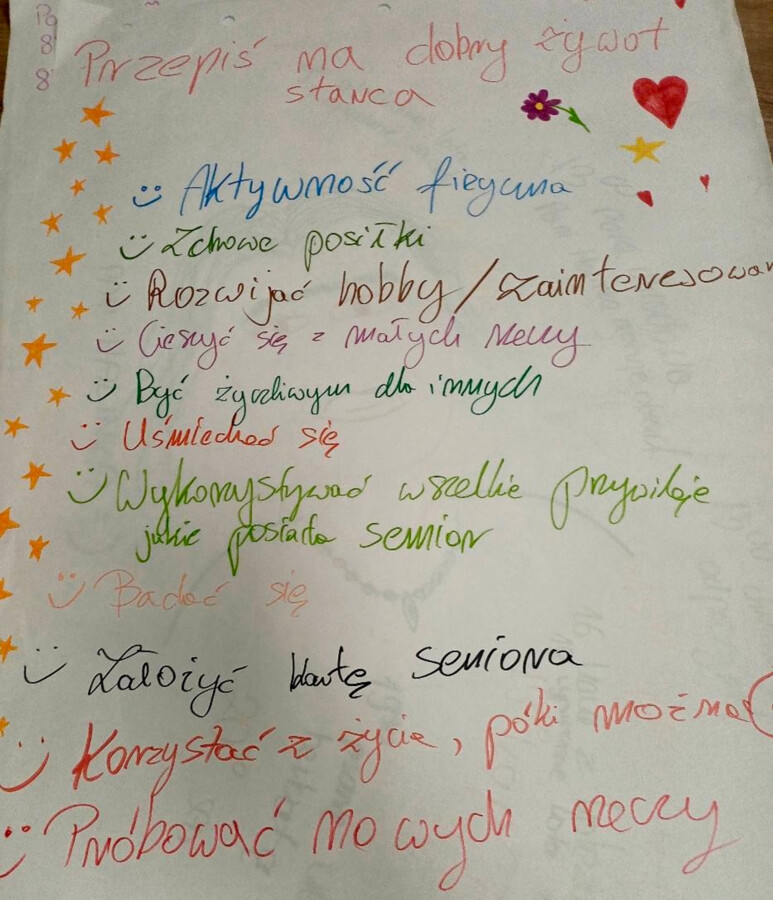 Po
8
8
Przepiś na dobry żywot
starca
Aktywność fizyczna
Zdrowe posiłki
Rozwijać hobby / zainteresowan
Cieszyć się z małych rzeczy
Być życzliwym dla innych
Uśmiechać się
Wykorzystywać wszelkie przywileje
jakie posiada senior
Badać się
Założyć kartę seniora
Korzystać z życia, póki można
Próbować nowych rzeczy